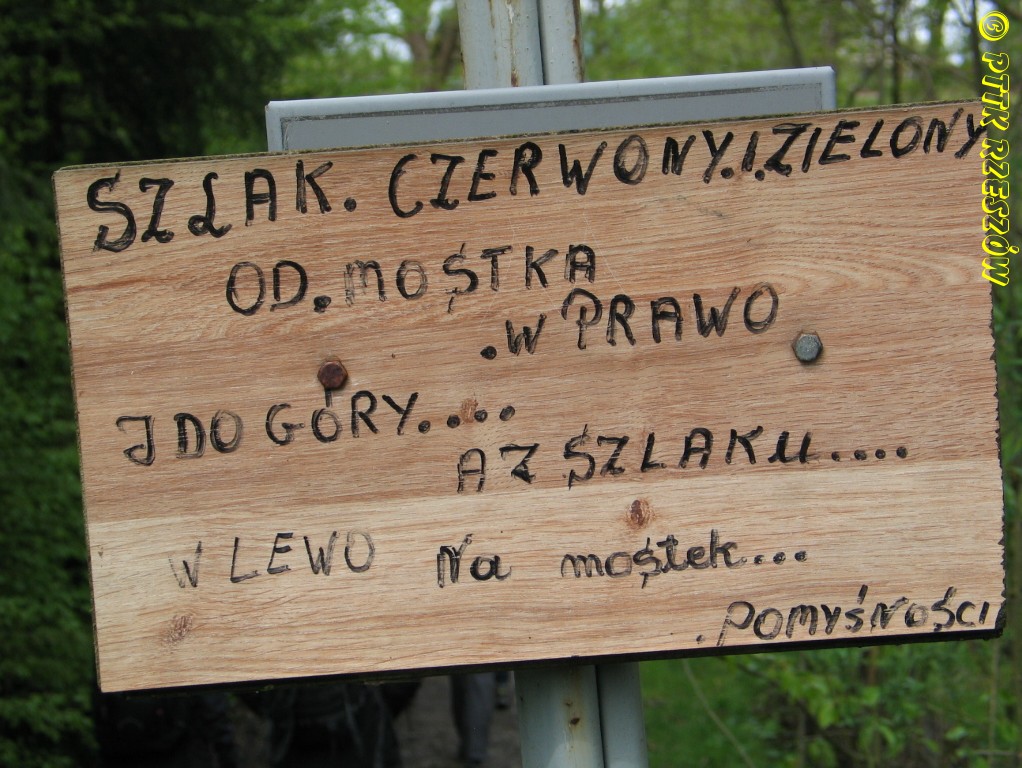 SZLAK. CZERWONY.I.ZIELONY
OD. MOSTKA
.W PRAWO
I DO GÓRY....
A Z SZLAKU....
W LEWO Na mostek...
.POMYŚNOŚCI
© PTTK RZESZÓW